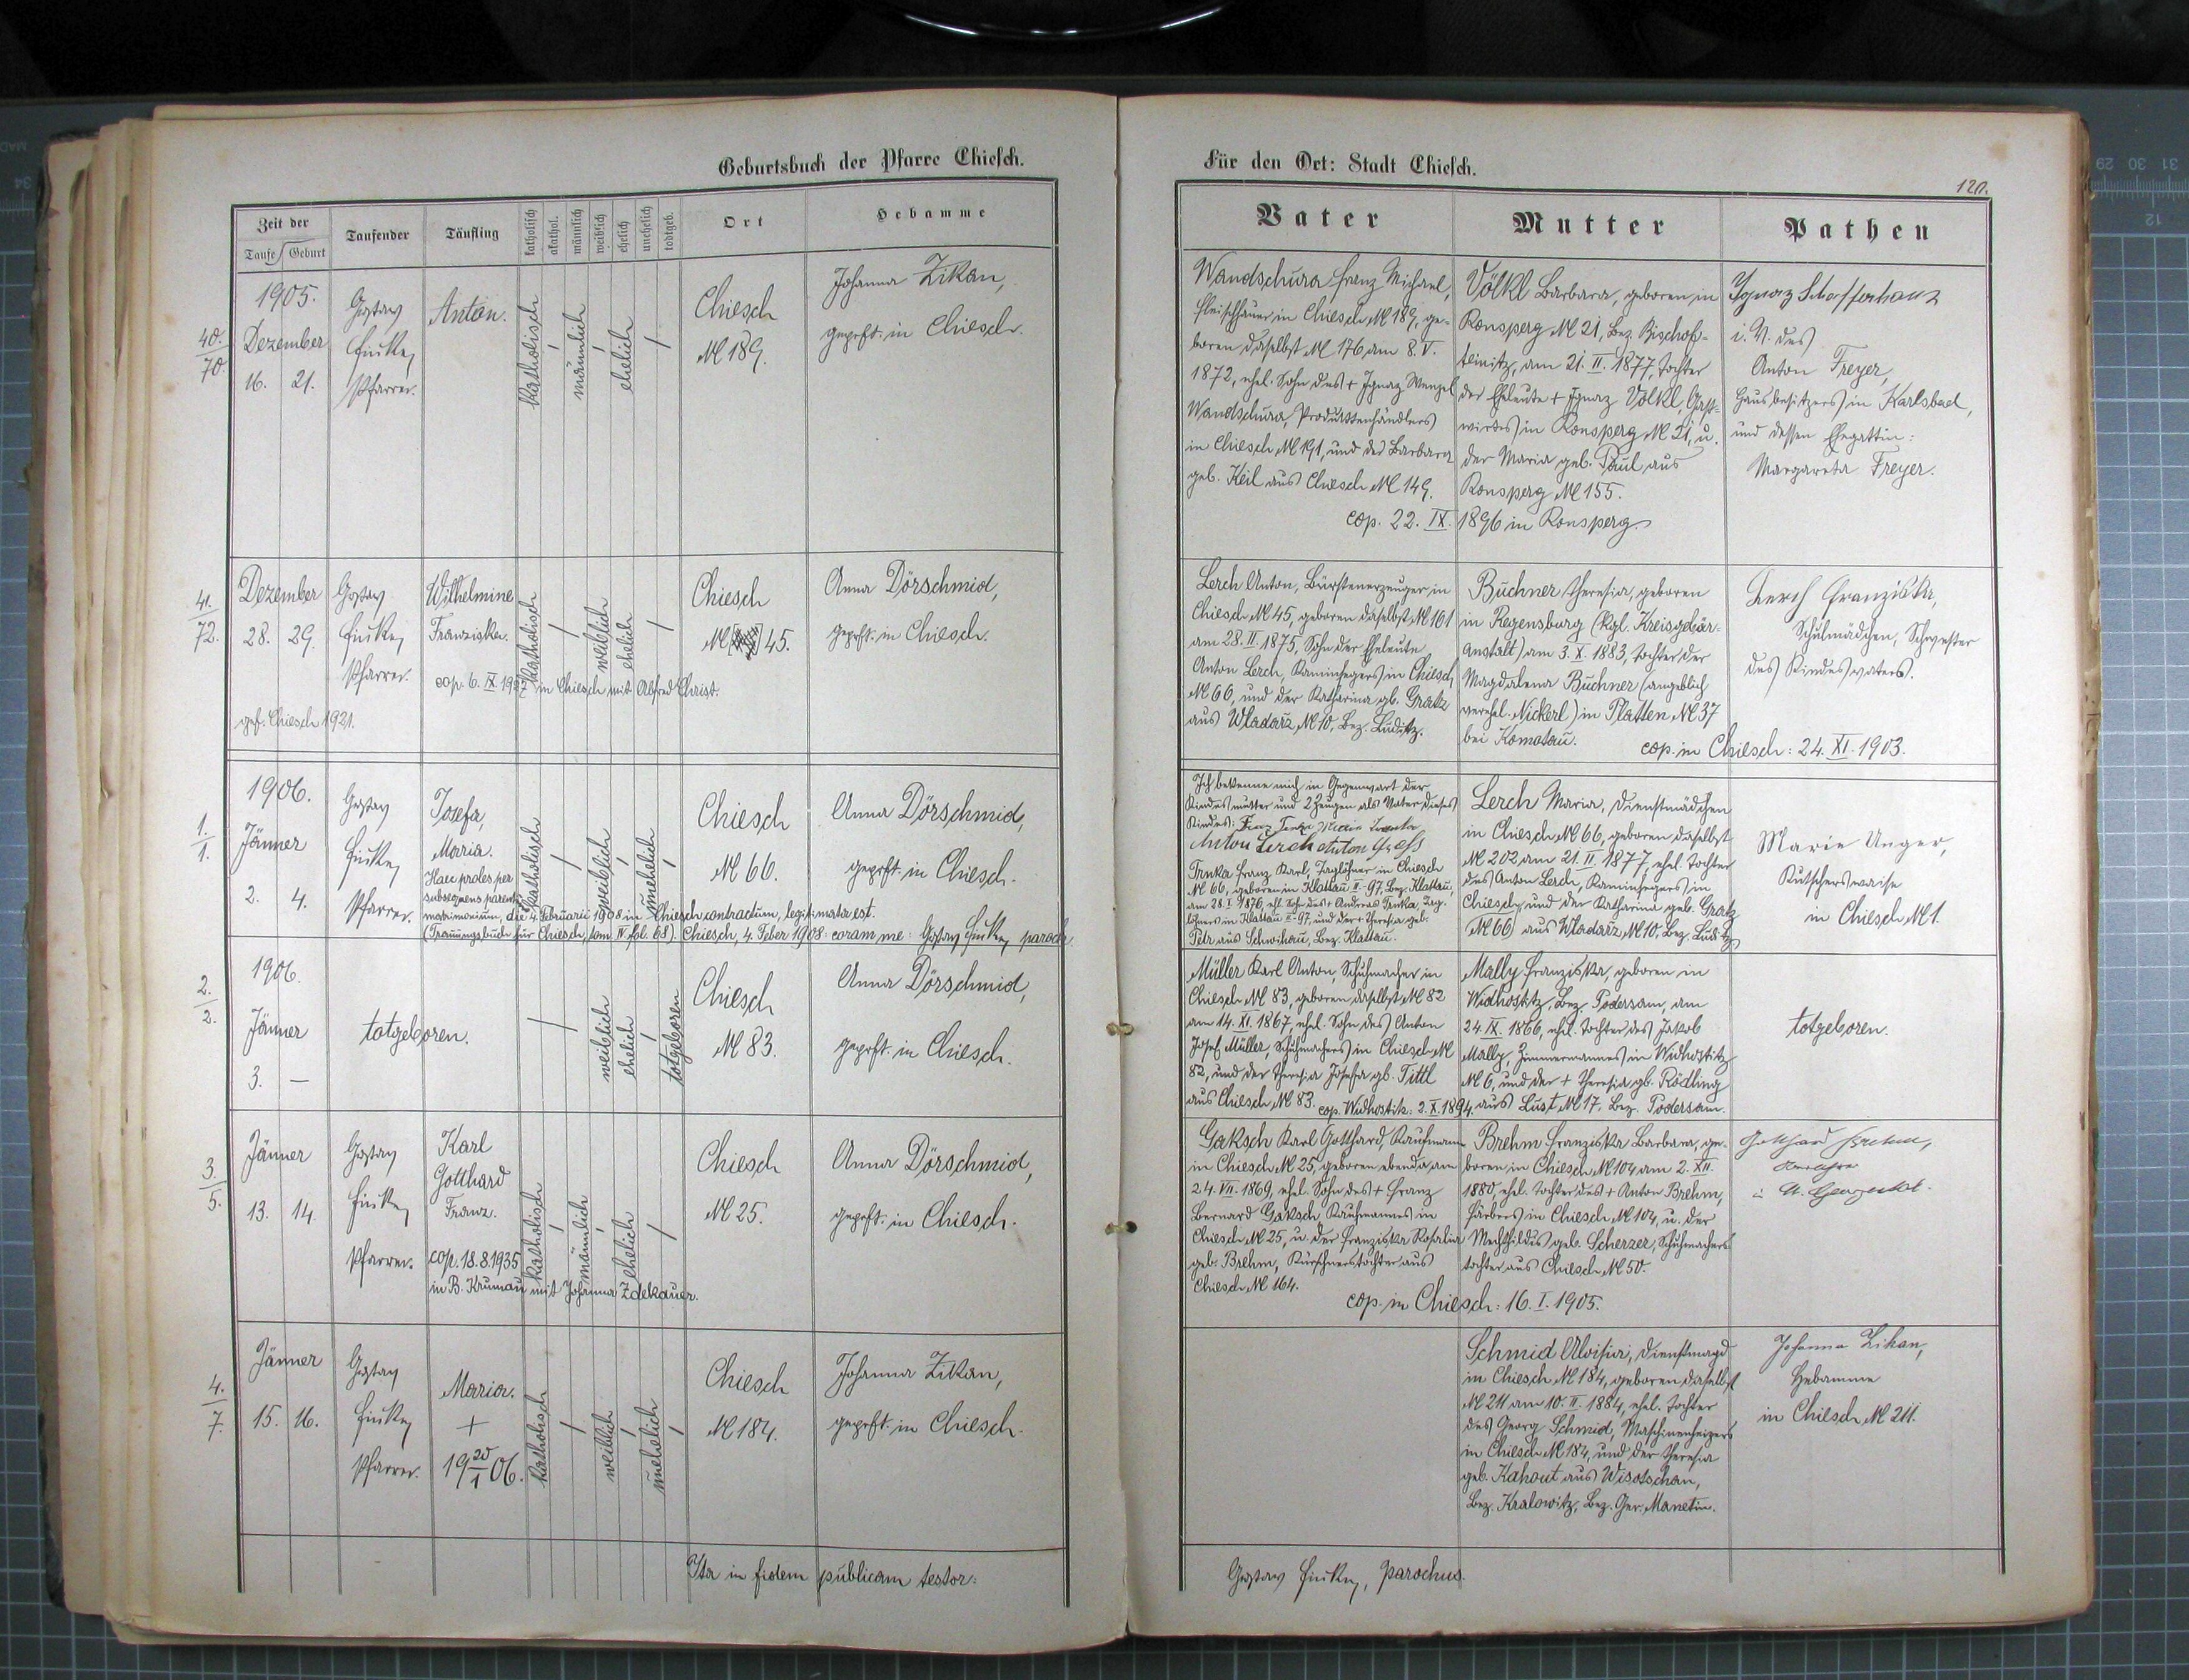 Geburtsbuch der Pfarre Chiesch.
Zeit der
Taufe Geburt
Taufender
Täufling
katholisch
akathol.
männlich
weiblich
ehelich
unehelich
todtgeb.
Ort
Hebamme
40.
70.
1905.
Dezember
16. 21.
Gustav
Pfarrer.
Anton.
katholisch
männlich
ehelich
Chiesch
№ 189.
Johanna Zikan,
geprft. in Chiesch.
41.
72.
Dezember
28. 29.
Gustav
Pfarrer.
Wilhelmine
Franziska.
katholisch
weiblich
ehelich
cop. 6. IX. 1927 in Chiesch mit Alfred Christ.
gef. Chiesch 1921.
Chiesch
№ 45.
Anna Dörschmid,
geprft. in Chiesch.
1.
1.
1906.
Jänner
2. 4.
Gustav
Pfarrer.
Josefa,
Maria.
Haec proles per
subsequens parentum
matrimonium, die 4. Februarii 1908 in Chiesch contractum, legitimata est.
(Trauungsbuch für Chiesch, tom IV fol. 68). Chiesch, 4. Feber 1908. coram me: Gustav
katholisch
weiblich
unehelich
Chiesch
№ 66.
Anna Dörschmid,
geprft. in Chiesch.
2.
2.
1906.
Jänner
3. —
totgeboren.
weiblich
ehelich
totgeboren
Chiesch
№ 83.
Anna Dörschmid,
geprft. in Chiesch.
3.
5.
Jänner
13. 14.
Gustav
Pfarrer.
Karl
Gotthard
Franz.
cop. 18.8.1935
in B. Krumau mit Johanna Zdekauer.
katholisch
männlich
ehelich
Chiesch
№ 25.
Anna Dörschmid,
geprft. in Chiesch.
4.
7.
Jänner
15. 16.
Gustav
Pfarrer.
Maria.
+
19 20/1 06.
katholisch
weiblich
unehelich
Chiesch
№ 184.
Johanna Zikan,
geprft. in Chiesch.
Ita in fidem publicam testor:
Für den Ort: Stadt Chiesch.
120.
Vater
Mutter
Pathen
Wandschura Franz Michael,
Fleischhauer in Chiesch № 189, ge-
boren daselbst № 176 am 8. V.
1872, ehel. Sohn des + Ignaz Wenzel
Wandschura, Produktenhändlers
in Chiesch № 191, und der Barbara
geb. Keil aus Chiesch № 149.
Völkl Barbara, geboren in
Ronsperg № 21, Bez. Bischof-
teinitz, am 21. II. 1877, Tochter
der Eheleute + Ignaz Völkl, Gast-
wirtes in Ronsperg № 21, u.
der Maria geb. Paul aus
Ronsperg № 155.
cop. 22. IX. 1896 in Ronsperg.
Ignaz
i. V. des
Anton Freyer,
Hausbesitzers in Karlsbad,
und dessen Ehegattin:
Margareta Freyer.
Lerch Anton, Bürstenerzeuger in
Chiesch № 45, geboren daselbst № 161
am 28. II. 1875, Sohn der Eheleute
Anton Lerch, Kaminfegers in Chiesch
№ 66, und der Katharina gb. Gratz
aus Wladarz № 10, Bez. Luditz.
Buchner Theresia, geboren
in Regensburg (kgl. Kreisgebär-
anstalt) am 3. X. 1883, Tochter der
Magdalena Buchner (angeblich
verehel. Nickerl) in Platten № 37
bei Komotau.
cop. in Chiesch: 24. XI. 1903.
Lerch Franziska,
Schulmädchen, Schwester
des Kindesvaters.
Ich bekenne mich in Gegenwart der
Kindesmutter und 2 Zeugen als Vater dieses
Kindes:
Anton Lerch Anton
Trnka Franz Karl, Taglöhner in Chiesch
№ 66, geboren in Klattau II-97, Bez. Klattau,
am 28. I. 1876, ehl. Sohn des + Andreas Trnka, Tag-
löhners in Klattau II-97, und der + Theresia geb.
Petr aus Schwihau, Bez. Klattau.
Lerch Maria, Dienstmädchen
in Chiesch № 66, geboren daselbst
№ 202 am 21. II. 1877, ehel. Tochter
des Anton Lerch, Kaminfegers in
Chiesch, und der Katharina geb. Gratz
(№ 66) aus Wladarz № 10, Bez. Luditz
Marie Unger,
Kutscherswaise
in Chiesch № 1.
Müller Karl Anton, Schuhmacher in
Chiesch № 83, geboren daselbst № 82
am 14. XI. 1867, ehel. Sohn des Anton
Josef Müller, Schuhmachers in Chiesch №
82, und der Theresia Josefa gb. Tittl
aus Chiesch № 83.
Mally Franziska, geboren in
Widhostitz, Bez. Podersam, am
24. IX. 1866, ehel. Tochter des Jakob
Mally, Zimmermannes in Widhostitz
№ 6, und der + Theresia gb. Rödling
aus Lust № 17, Bez. Podersam.
cop. Widhostitz: 2. X. 1894.
totgeboren.
Gaksch Karl Gotthard, Kaufmann
in Chiesch № 25, geboren ebenda am
24. VII. 1869, ehel. Sohn des + Franz
Bernard Gaksch, Kaufmannes in
Chiesch № 25, u. der Franziska Rosalia
geb. Brehm, Kürschnerstochter aus
Chiesch № 164.
Brehm Franziska Barbara, ge-
boren in Chiesch № 104 am 2. XII.
1880, ehel. Tochter des + Anton Brehm,
Färbers in Chiesch № 104, u. der
Mechthildis geb. Scherzer, Schuhmachers-
tochter aus Chiesch № 50.
cop. in Chiesch: 16. I. 1905.
Gotthard Brehm,
Schmid Aloisia, Dienstmagd
in Chiesch № 184, geboren daselbst
№ 211 am 10. II. 1884, ehel. Tochter
des Georg Schmid, Maschinenheizers
in Chiesch № 184, und der Theresia
geb. Kahout aus Wisotschan,
Bez. Kralowitz, Bez. Ger. Manetin.
Johanna Zikan,
Hebamme
in Chiesch № 211.
Gustav parochus.